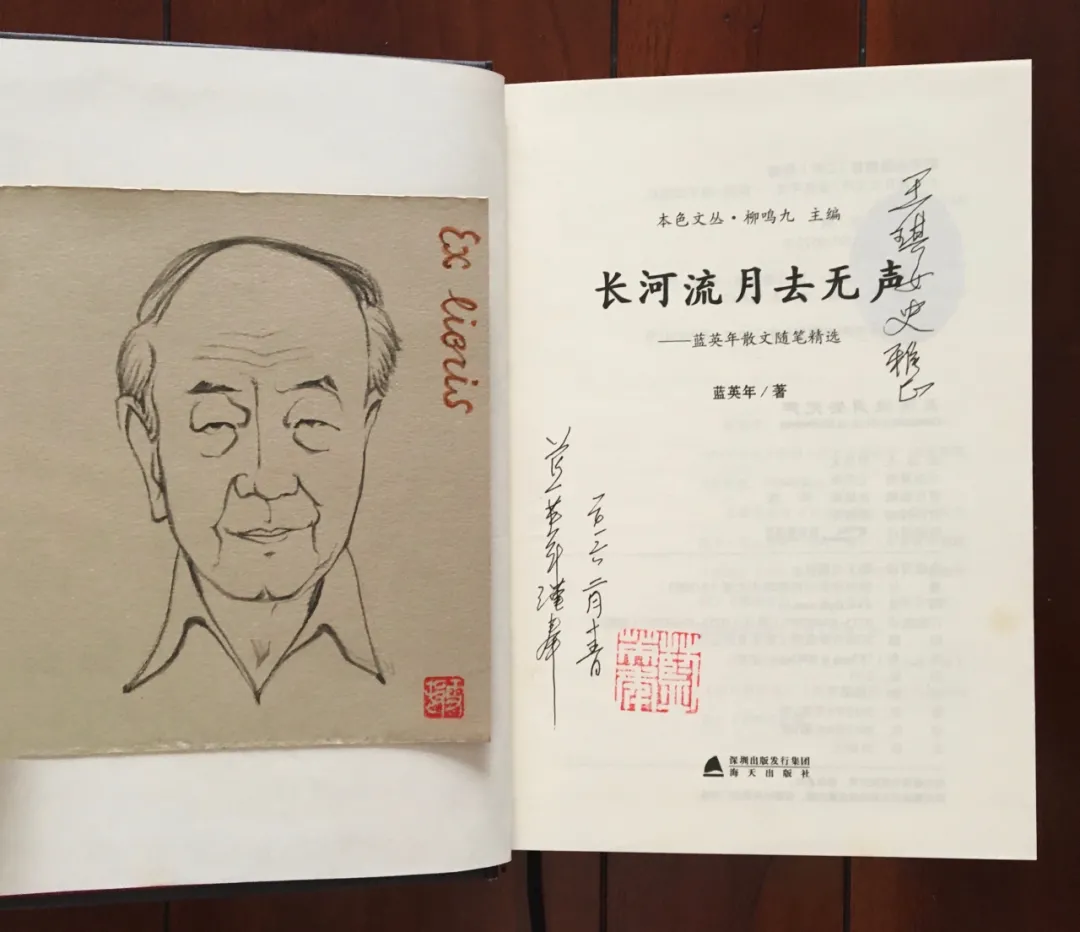 Ex lioris
本色文丛·柳鸣九 主编
长河流月去无声
——蓝英年散文随笔精选
蓝英年/著
王琪女史雅正
蓝英年谨奉
深圳出版发行集团
海天出版社